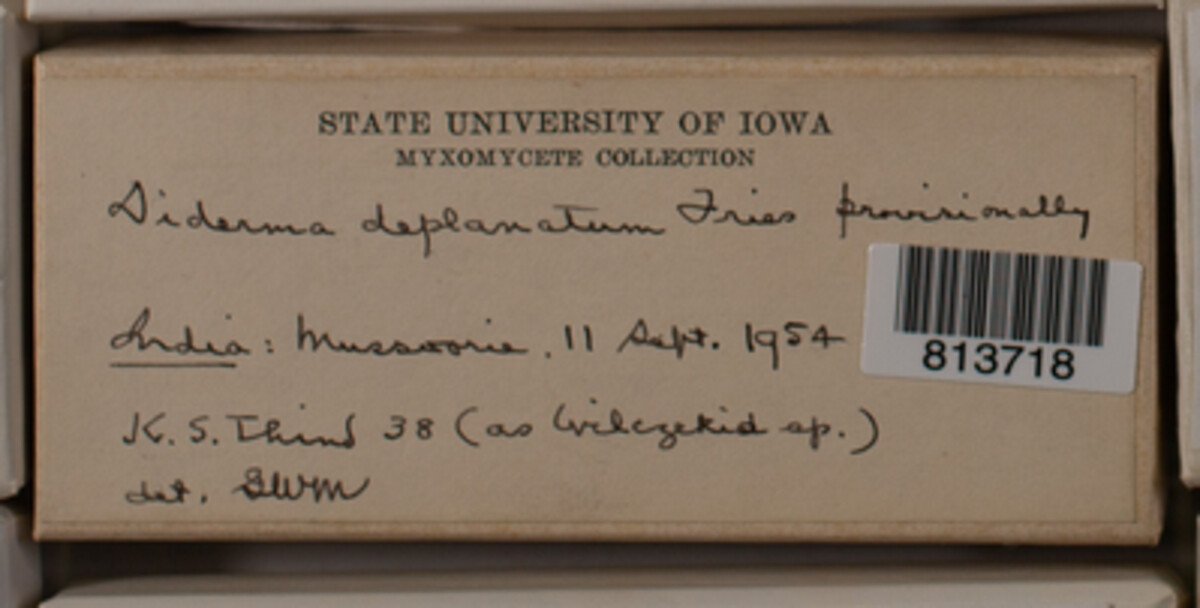 STATE UNIVERSITY OF IOWA
MYXOMYCETE COLLECTION
Diderma deplanatum Fries provisionally
India: Mussoorie, 11 Sept. 1954
813718
K. S. Thind 38 (as Wilczekid sp.)
det. GWM